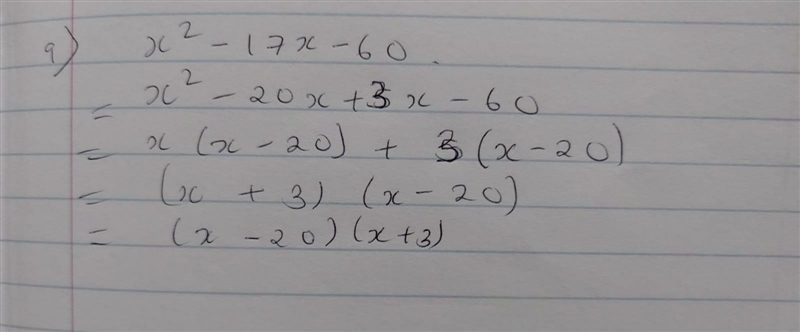 9) x² - 17x - 60.
= x² - 20x + 3x - 60
= x (x - 20) + 3 (x - 20)
= (x + 3) (x - 20)
= (x - 20) (x + 3)